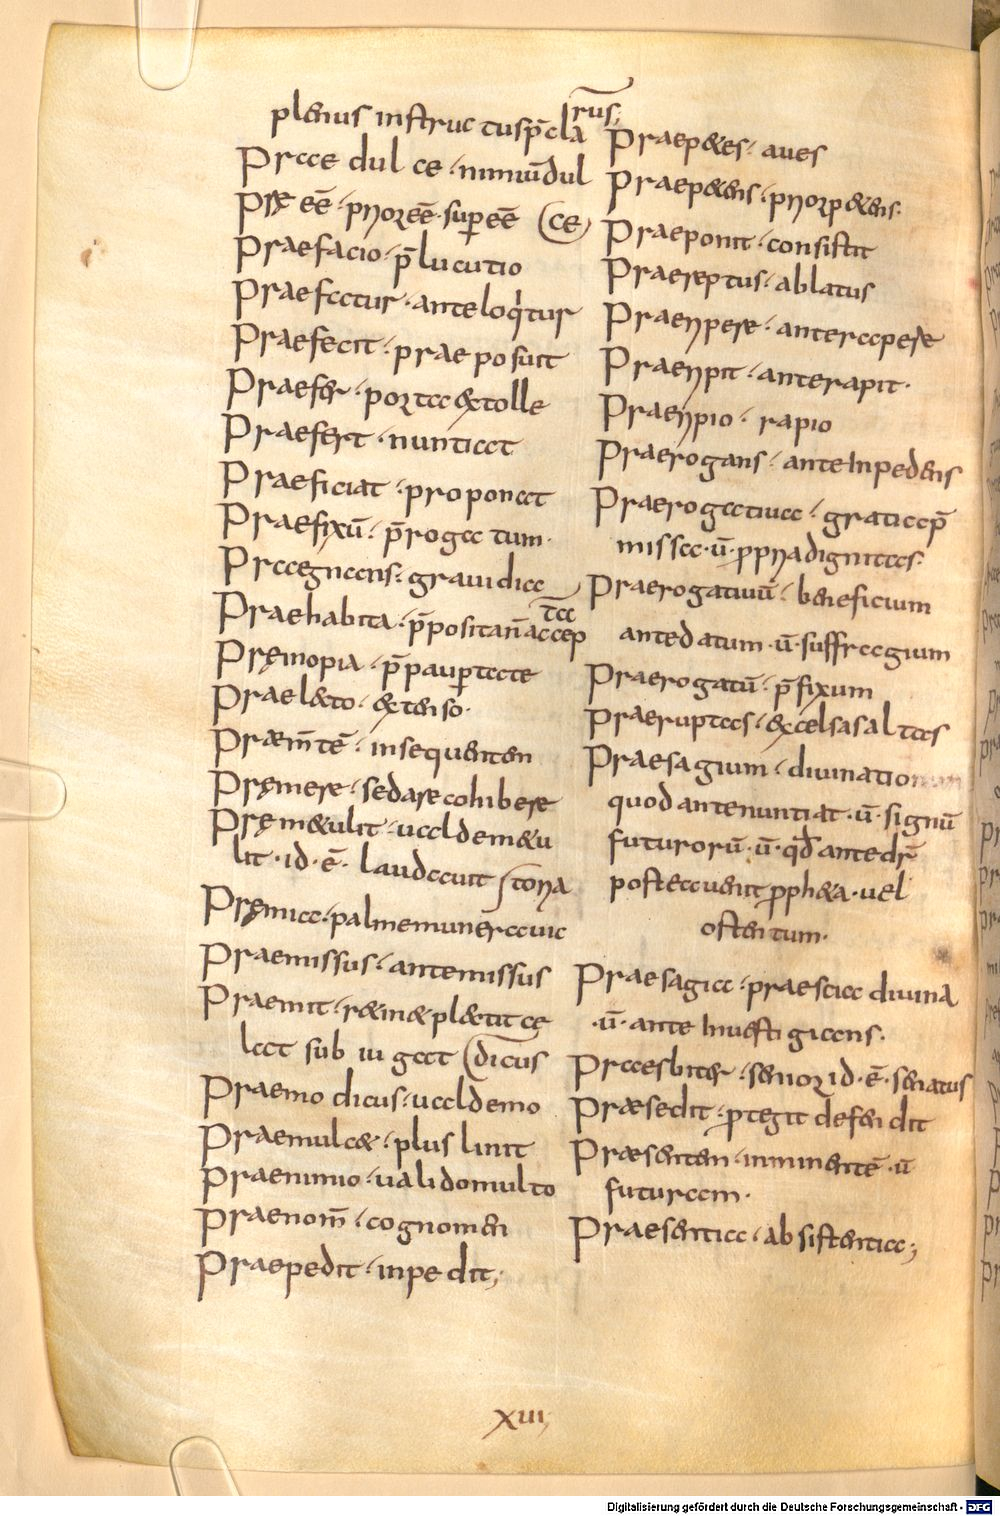 plenius instructus p̄cla
rus;
Praedulce · nimiū dul
Pręeē · prioreē · supereē (ce)
Praefacio · p̄lucutio
Praefatur · anteloquitur
Praefecit · praeposuit
Praefer · porta & extolle
Praefert · nuntiat
Praeficiat · proponat
Praefixū · p̄rogatum ·
Praegnans · grauida
Praehabita · p̄posita n̄ accep
ta
Pręmopia · p̄paupertate
Praelato · extenso ·
Praem̄tē · insequenten
Pręmere · sedare cohibere
Pręm&ulit · ualdem&u
lit · id · ē · laudauit
Pręmia · palme munera
Praemissus · antemissus
Praemit · r&in&
lat sub iugat (dicus
Praemodicus · ualdemo
Praemulc& · plus linit
Praenimio · ualidomulto
Praenom̄ · cognomen
Praepedit · inpedit;
Praep&es · aues
Praep&ens · priorp&ens ·
Praeponit · consistit
Praereptus · ablatus
Praeripere · anterapere
Praeripit · anterapit ·
Praeripio · rapio
Praerogans · anteinpedens
Praerogatiua · gratia p̄
missa · ū · ꝓpria dignitas ·
Praerogatiuū · beneficium
antedatum · ū · suffragium
Praerogatū · p̄fixum
Praeruptas · excelsas altas
Praesagium · diuination
quod antenuntiat · ū · signū
futurorū · ū · qđ antedr̄
posteauenit ꝓph&a · uel
ostentum ·
Praesagia · praescia diuina
· ū · ante inuestigans ·
Praesbiter · senior id · ē · senatus
Praesedit · ꝓtegit defendit
Praesenten · inminentē · ū
futuram ·
Praesentia · absistentia;
xiii,
Digitalisierung gefördert durch die Deutsche Forschungsgemeinschaft - DFG